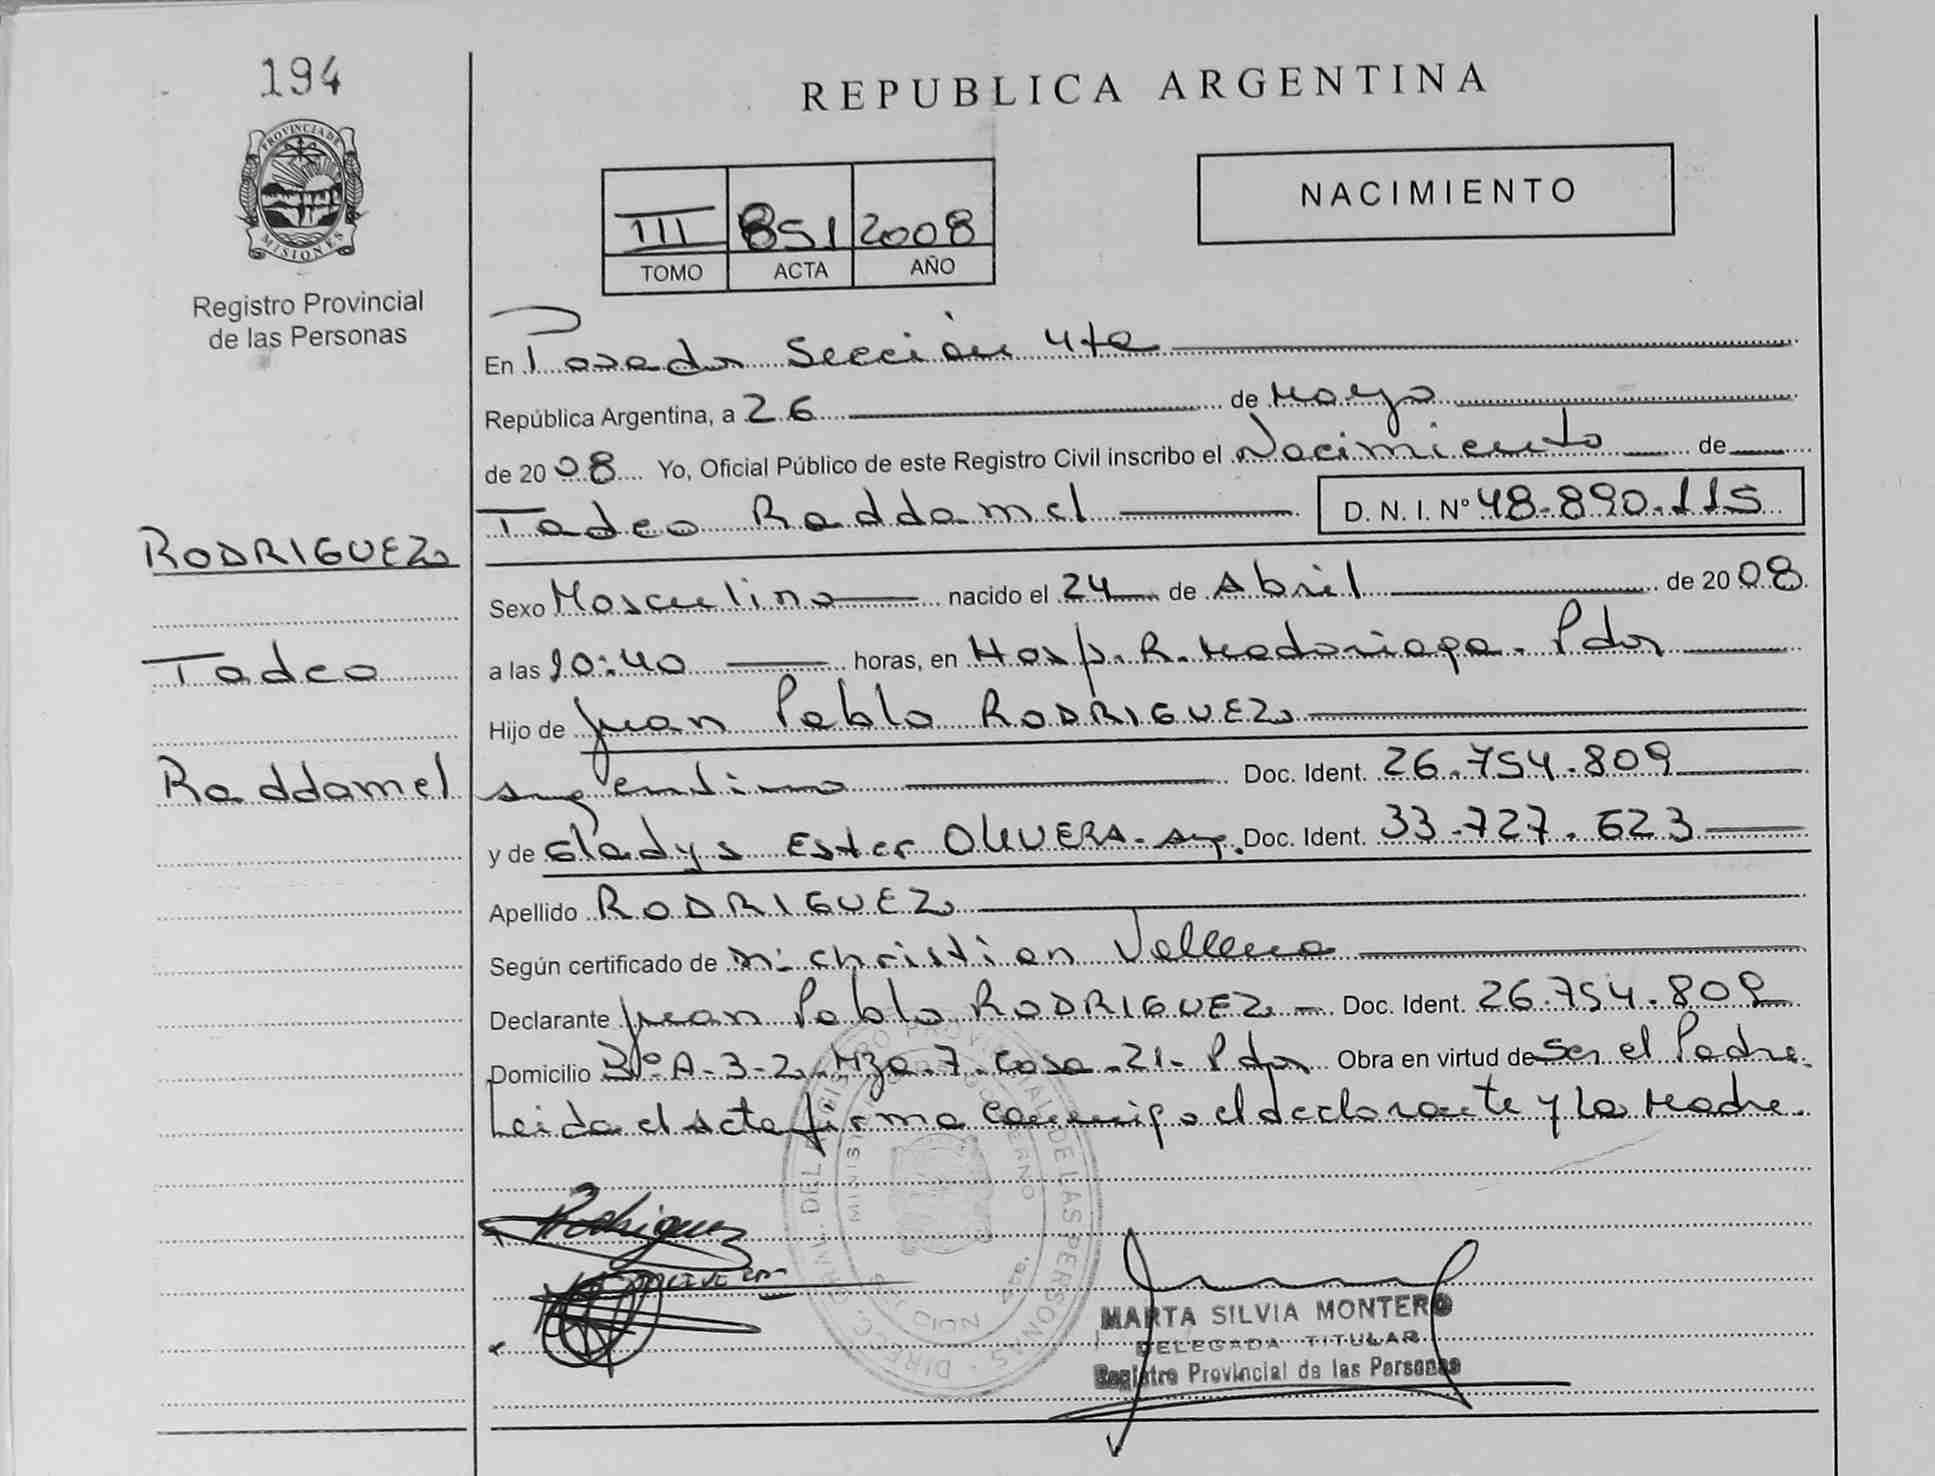 194
PROVINCIA DE
MISIONES
Registro Provincial
de las Personas
RODRIGUEZ
Tadeo
Raddamel
REPUBLICA ARGENTINA
NACIMIENTO
III 851 2008
TOMO ACTA AÑO
En Posadas Sección 4ta
República Argentina, a 26 de Mayo
de 2008 Yo, Oficial Público de este Registro Civil inscribo el Nacimiento de
Tadeo Raddamel D. N. I. Nº 48.890.115
Sexo Masculino nacido el 24 de Abril de 2008
a las 20:40 horas, en Hosp. R. Madariaga. Pdas
Hijo de Juan Pablo RODRIGUEZ
argentino Doc. Ident. 26.754.809
y de Gladys Ester OLIVERA. arg. Doc. Ident. 33.727.623
Apellido RODRIGUEZ
Según certificado de Christian
Declarante Juan Pablo RODRIGUEZ Doc. Ident. 26.754.809
Domicilio A-3-2. Mza. 7. Casa. 21. Pdas Obra en virtud de ser el Padre.
Leida el acta firma conmigo el declarante y la Madre.
Rodriguez
MARTA SILVIA MONTERO
DELEGADA TITULAR
Registro Provincial de las Personas